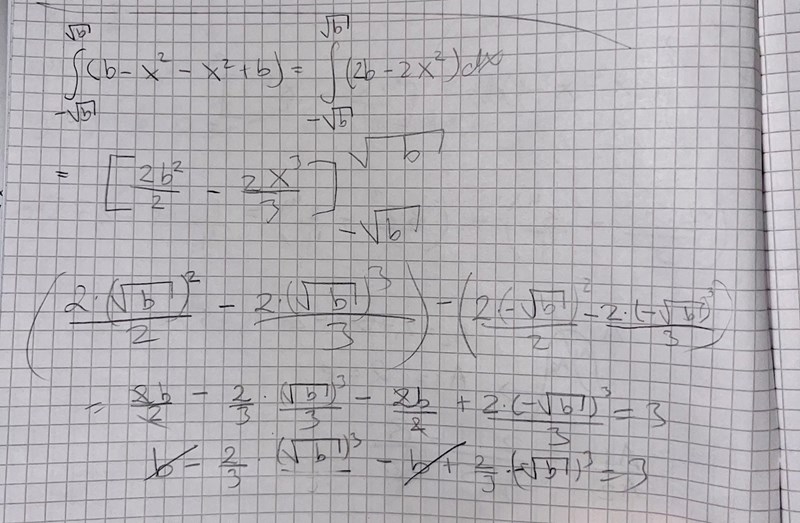 ∫_{-√b}^{√b} (b - x² - x² + b) = ∫_{-√b}^{√b} (2b - 2x²) dx
= [2b²/2 - 2x³/3]_{-√b}^{√b}
(2·(√b)²/2 - 2·(√b)³/3) - (2·(-√b)²/2 - 2·(-√b)³/3)
= 2b/2 - 2/3 · (√b)³/3 - 2b/2 + 2·(-√b)³/3 = 3
b - 2/3 · (√b)³ - b + 2/3 · (-√b)³ = 3